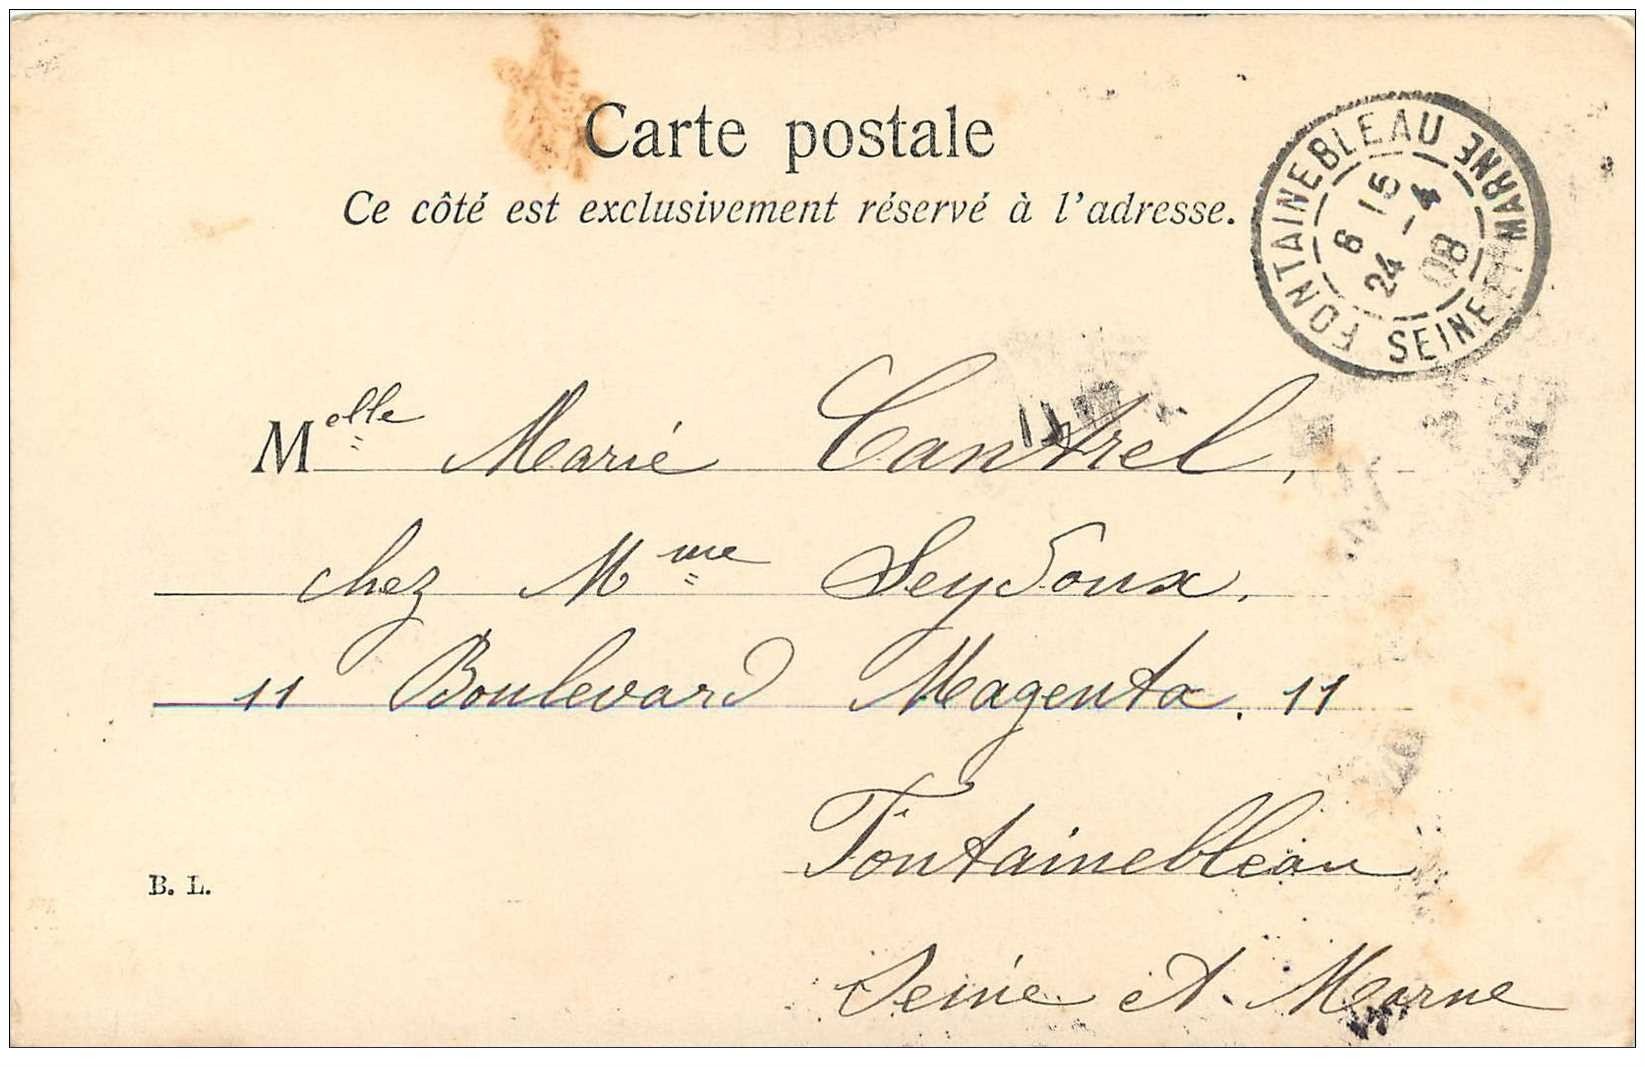 Carte postale
Ce côté est exclusivement réservé à l'adresse.
FONTAINEBLEAU SEINE ET MARNE
6 15
24 - 4
08
Melle Marie Cantrel,
chez Mme Seydoux.
11 Boulevard Magenta. 11
Fontainebleau
B. L.
Seine et Marne